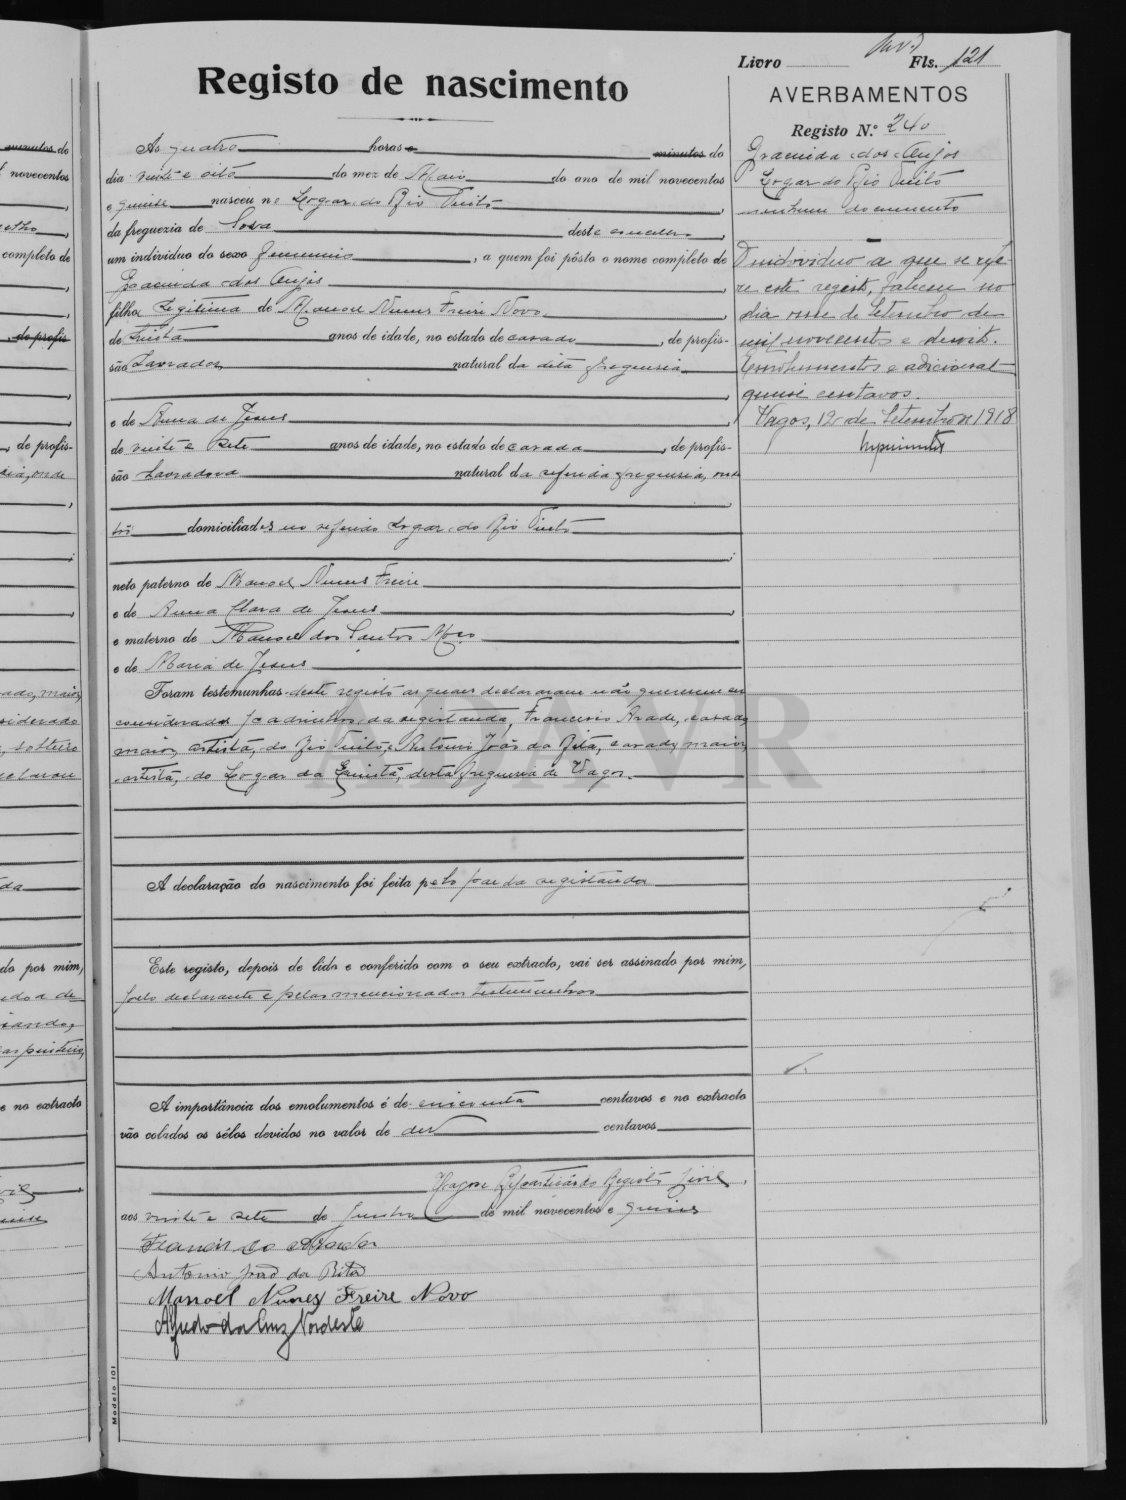 Livro Fls. 121
Registo de nascimento
AVERBAMENTOS
Registo N.º 240
Gracinda dos Anjos
Logar do Rio Tinto
nenhum documento
O individuo a que se refe-
re este registo, faleceu no
dia onze de Setembro de
mil novecentos e dezoito.
Emolumentos e adicional
quinze centavos.
Vagos, 12 de Setembro de 1918
As quatro horas e minutos do
dia vinte e oito do mez de Maio do ano de mil novecentos
e quinze nasceu no Logar do Rio Tinto,
da freguezia de Soza deste concelho,
um individuo do sexo femenino, a quem foi pôsto o nome completo de
Gracinda dos Anjos,
filha legitima de Manoel Nunes Freire Novo,
de trinta anos de idade, no estado de casado, de profis-
são Lavrador natural da dita freguesia
e de Anna de Jesus,
de vinte e sete anos de idade, no estado de casada, de profis-
são Lavradora natural da referida freguesia, onde
domiciliados no referido Logar do Rio Tinto
neto paterno de Manoel Nunes Freire
e de Anna Clara de Jesus,
e materno de Manoel dos Santos Moço
e de Maria de Jesus
Foram testemunhas deste registo as quaes declararam não quererem ser
considerados padrinhos da registanda, Francisco casado
maior, artista, do Rio Tinto, e Antonio João da Rita, casado, maior,
artista, do Logar da Quintã, desta freguesia de Vagos.
ADAVR
A declaração do nascimento foi feita pelo pae da registanda
Este registo, depois de lido e conferido com o seu extracto, vai ser assinado por mim,
pelo declarante e pelas mencionadas testemunhas
A importância dos emolumentos é de cincoenta centavos e no extracto
vão colados os sêlos devidos no valor de dez centavos
Vagos e Repartição do Registo Civil,
aos vinte e sete de Junho de mil novecentos e quinze
Francisco
Antonio João da Rita
Manoel Nunes Freire Novo
Alfredo da Cruz Nordeste
Modelo 101